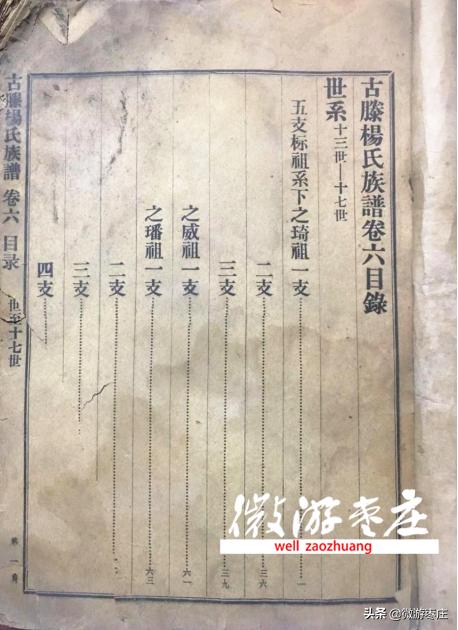 古滕楊氏族譜卷六目錄
世系 十三世—十七世
五支标祖系下之琦祖一支 一
二支 三六
三支 三九
之威祖一支 六一
之璠祖一支 六三
二支
三支
四支
古滕楊氏族譜 卷六 目录
世至十七世
第一頁
微游枣庄
well zaozhuang
头条 @微游枣庄